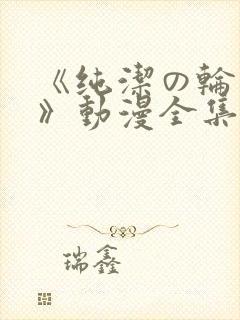 《纯潔の輪
》動漫全集
瑞鑫